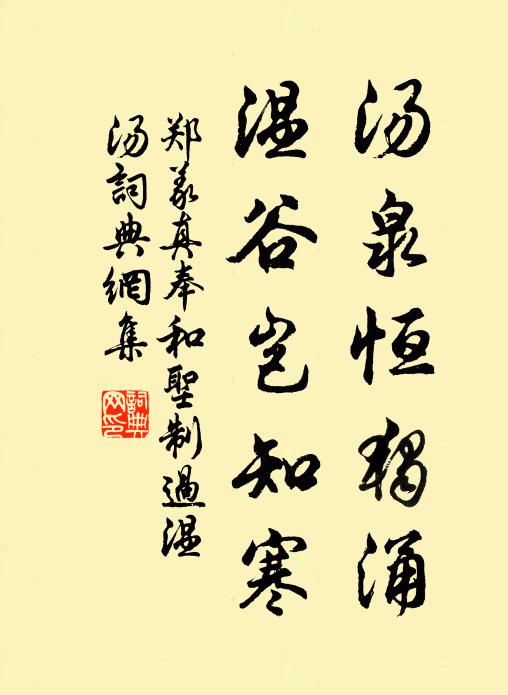 汤泉恒独涌
温谷岂知寒
郑义真奉和聖制過温
汤詞典網集
詞典
网印